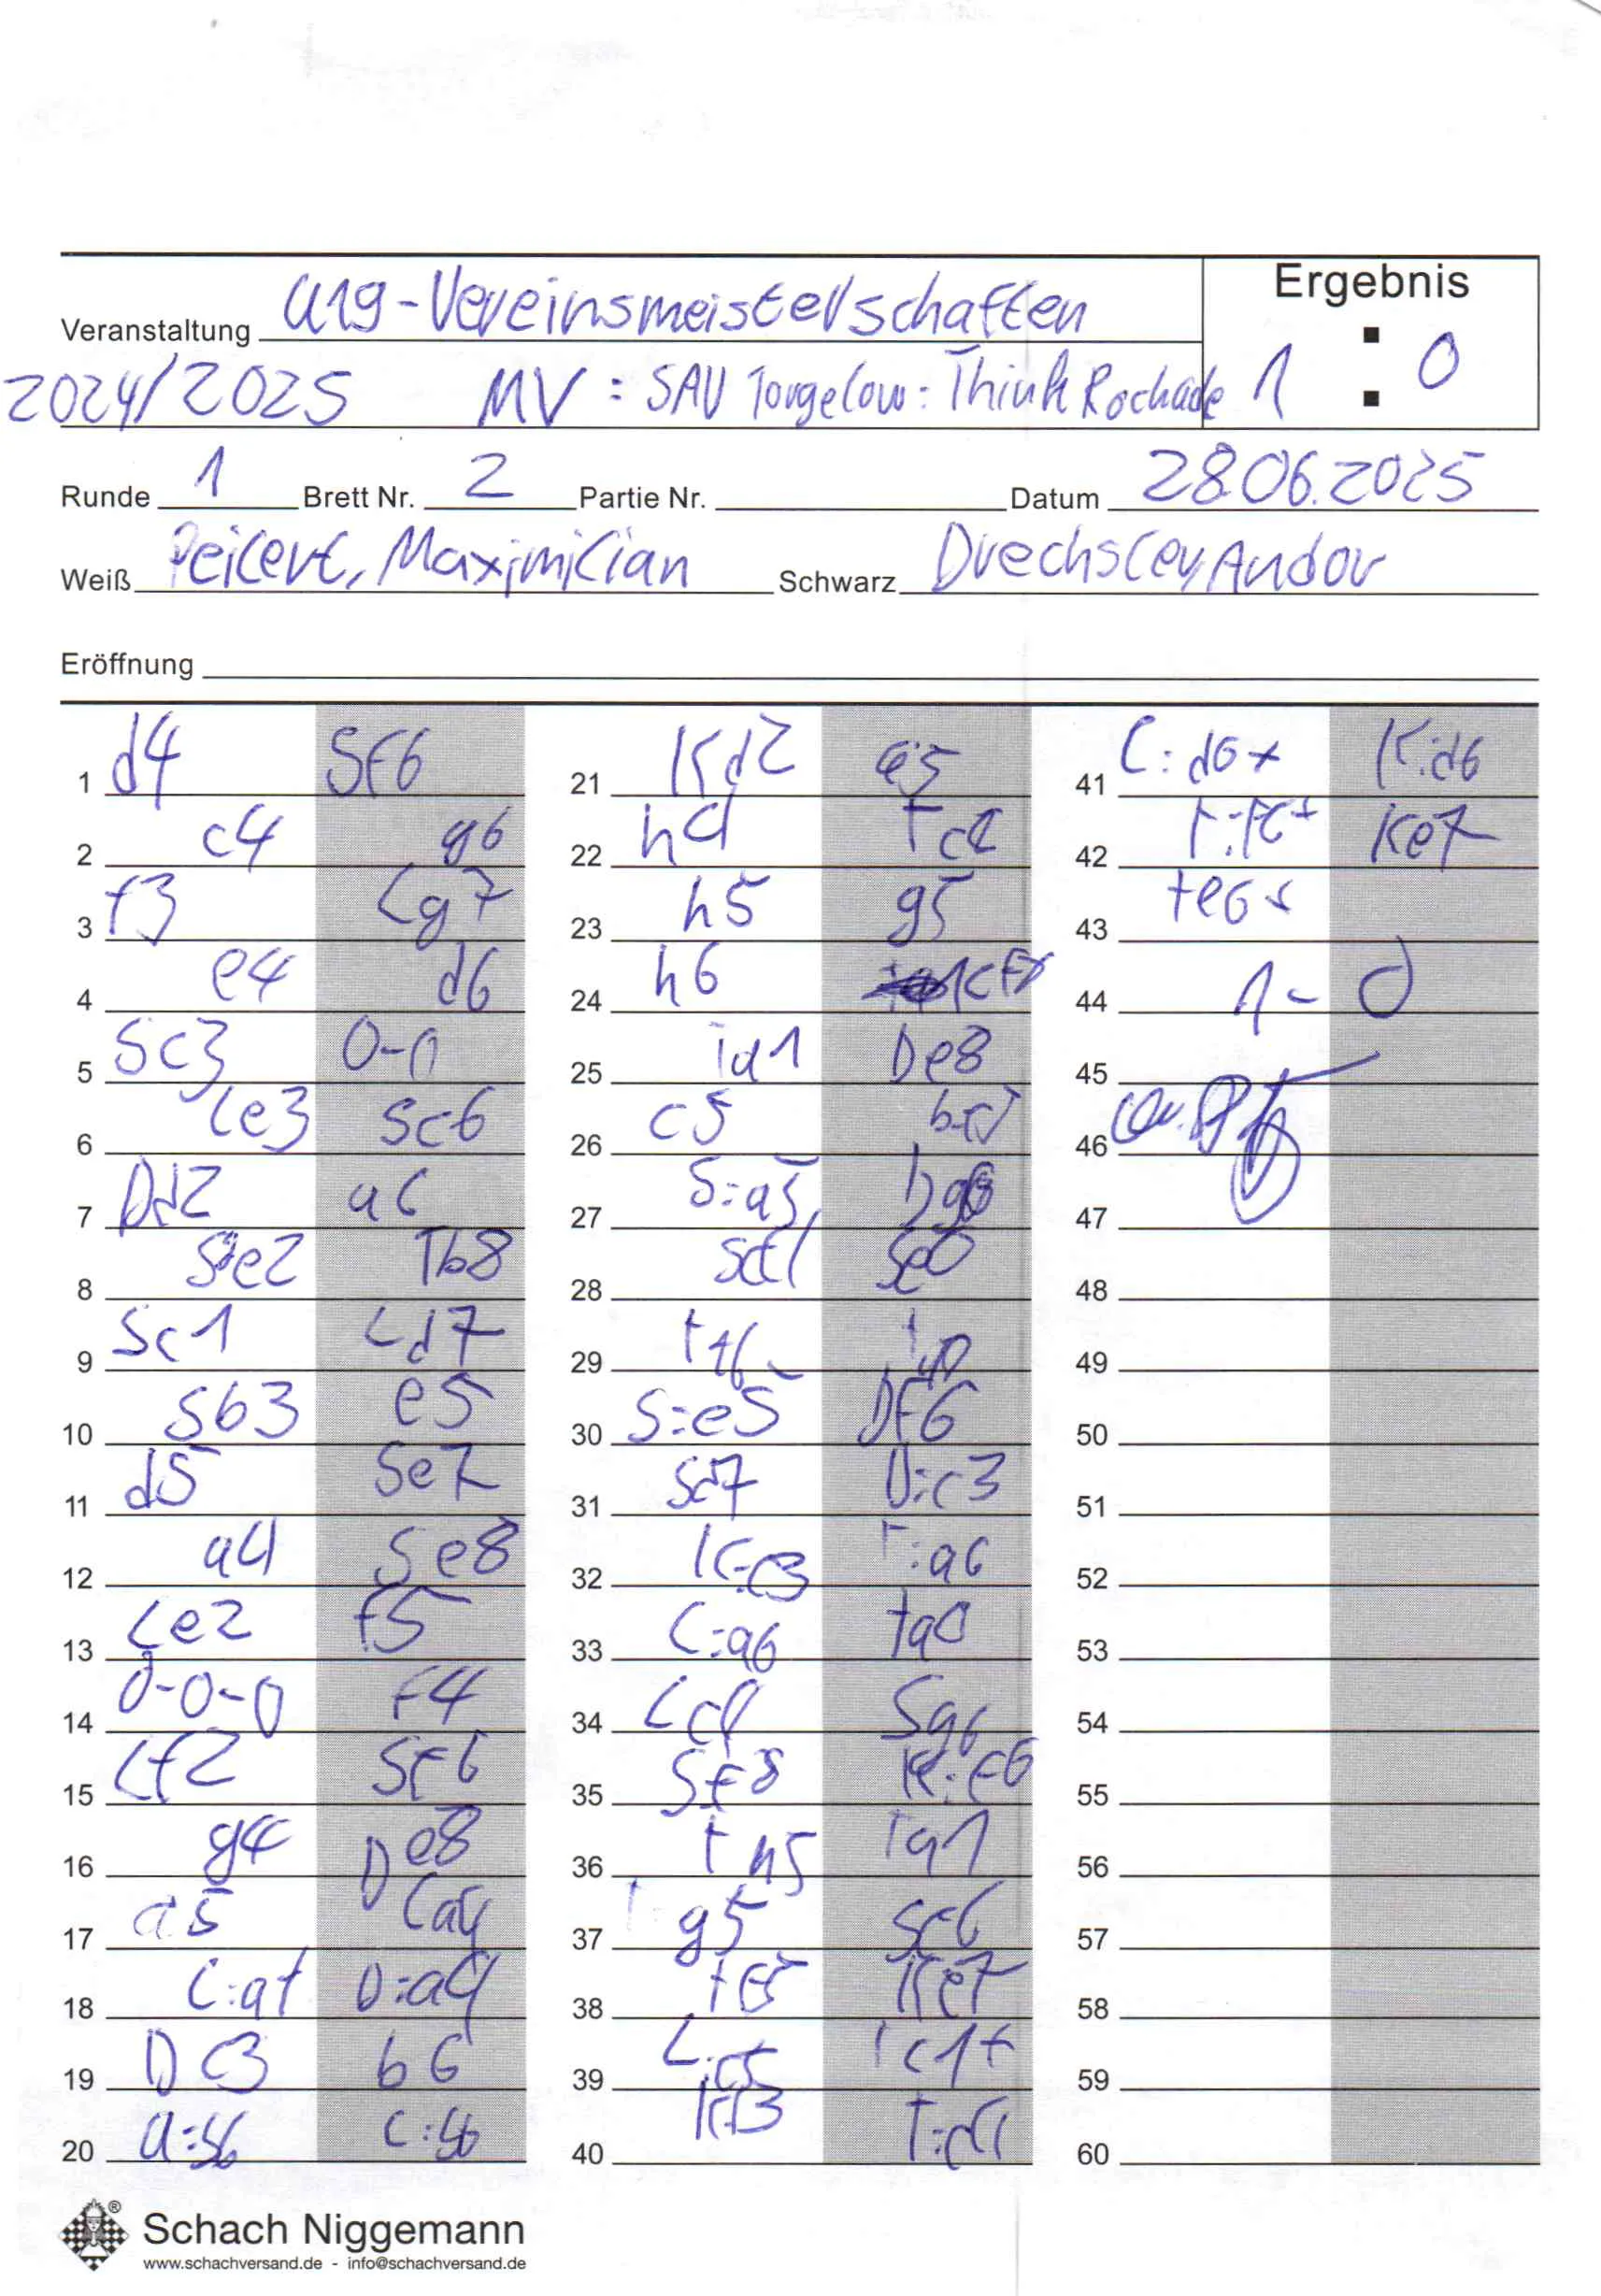 Ergebnis
Veranstaltung U19-Vereinsmeisterschaften
2024/2025 MV : SAV Torgelow : Think Rochade 1 : 0
Runde 1 Brett Nr. 2 Partie Nr. Datum 28.06.2025
Weiß Peikert, Maximilian Schwarz Drechsler, Andor
Eröffnung
1 d4 Sf6
2 c4 g6
3 f3 Lg7
4 e4 d6
5 Sc3 0-0
6 Le3 Sc6
7 Dd2 a6
8 Sge2 Tb8
9 Sc1 Ld7
10 Sb3 e5
11 d5 Se7
12 a4 Se8
13 Le2 f5
14 0-0-0 f4
15 Lf2 Sf6
16 g4 De8
17 a5 La4
18 L:a7 D:a4
19 Dc3 b6
20 a:b6 c:b6
21 Kd2 a5
22 h4 Tc8
23 h5 g5
24 h6 Kf7
25 Ta1 De8
26 c5
27 S:a5
28
29
30 S:e5 Df6
31 Sd7 D:c3
32 K:c3 T:a6
33 L:a6 Ta8
34 Lc4 Sg6
35 Sf8 K:f6
36 Th5 Ta1
37 g5
38 Tf5 Ke7
39 L:c5 Tc1+
40 T:c4
41 L:d6+ K:d6
42 Ke7
43 Te6+
44 1-0
45
46
47
48
49
50
51
52
53
54
55
56
57
58
59
60
Schach Niggemann
www.schachversand.de - info@schachversand.de